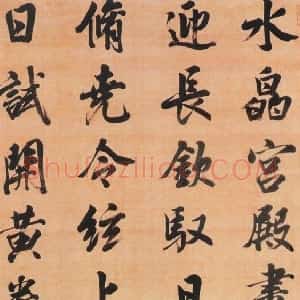 水晶宮殿書
迎長欽馭日
脩堯令絃上
日試開黃卷
shufaziliao.COM